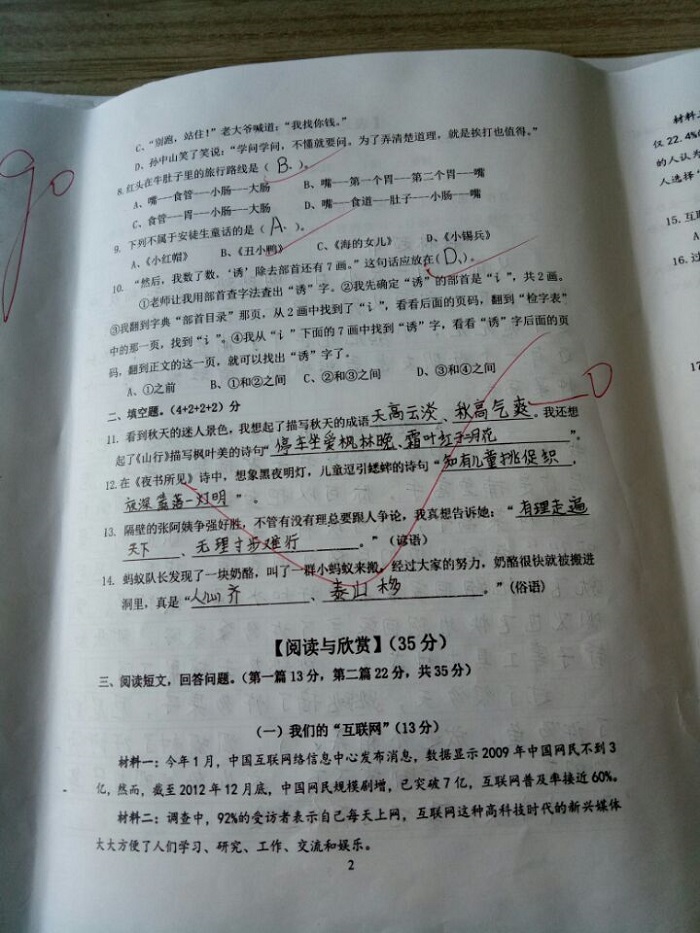 C、“别跑，站住！”老大爷喊道：“我找你钱。”
D、孙中山笑了笑说：“学问学问，不懂就要问。为了弄清楚道理，就是挨打也值得。”
8.红头在牛肚子里的旅行路线是（ B 、）。
A、嘴---食管---小肠---大肠 B、嘴---第一个胃---第二个胃---嘴
C、食管---胃---小肠---大肠 D、嘴---食道---肚子---小肠---嘴
9、下列不属于安徒生童话的是（ A 、）。
A、《小红帽》 B、《丑小鸭》 C、《海的女儿》 D、《小锡兵》
10、“然后，我数了数，‘诱’除去部首还有7画。”这句话应放在（ D 、）。
①老师让我用部首查字法查出“诱”字。②我先确定“诱”的部首是“讠”，共2画。
③我翻到字典“部首目录”那页，从2画中找到了“讠”，看看后面的页码，翻到“检字表”
中的那一页，找到“讠”。④我从“讠”下面的7画中找到“诱”字，看看“诱”字后面的页
码，翻到正文的这一页，就可以找出“诱”字了。
A、①之前 B、①和②之间 C、②和③之间 D、③和④之间
二、填空题。（4+2+2+2）分
11、看到秋天的迷人景色，我想起了描写秋天的成语 天高云淡 、 秋高气爽 。我还想
起了《山行》描写枫叶美的诗句“ 停车坐爱枫林晚、霜叶红于二月花 ”。
12、在《夜书所见》诗中，想象黑夜明灯，儿童逗引蟋蟀的诗句“ 知有儿童挑促织 ，
 ”。
13、隔壁的张阿姨争强好胜，不管有没有理总要跟人争论，我真想告诉她：“ 有理走遍
天下 、 无理寸步难行 。”（谚语）
14、蚂蚁队长发现了一块奶酪，叫了一群小蚂蚁来搬。经过大家的努力，奶酪很快就被搬进
洞里，真是“ 人心齐 、 泰山移 。”（俗语）
【阅读与欣赏】（35分）
三、阅读短文，回答问题。（第一篇13分，第二篇22分，共35分）
（一）我们的“互联网”（13分）
材料一：今年1月，中国互联网络信息中心发布消息，数据显示2009年中国网民不到3
亿，然而，截至2012年12月底，中国网民规模剧增，已突破7亿，互联网普及率接近60%。
材料二：调查中，92%的受访者表示自己每天上网，互联网这种高科技时代的新兴媒体
大大方便了人们学习、研究、工作、交流和娱乐。
2
90
仅22.4%
的人认为
人选择“
15.互联
A
16.过
17